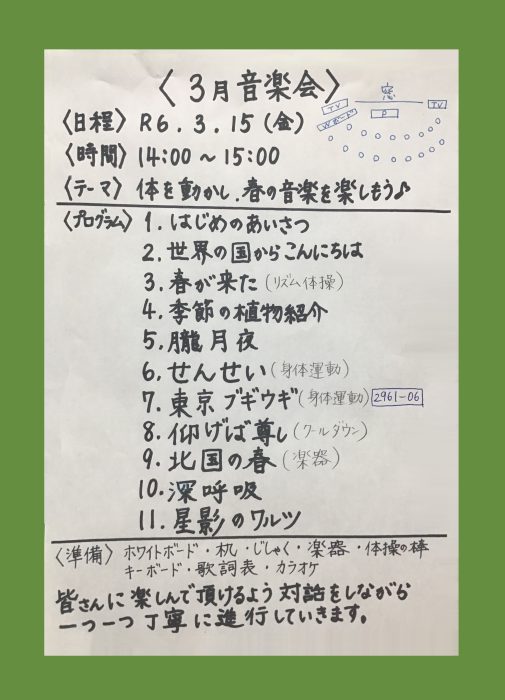 〈3月音楽会〉
〈日程〉R6.3.15(金)
窓
TV
Wボード
P
TV
〈時間〉14:00～15:00
〈テーマ〉体を動かし、春の音楽を楽しもう♪
〈プログラム〉1.はじめのあいさつ
2.世界の国からこんにちは
3.春が来た(リズム体操)
4.季節の植物紹介
5.朧月夜
6.せんせい(身体運動)
7.東京ブギウギ(身体運動) 2961-06
8.仰げば尊し(クールダウン)
9.北国の春(楽器)
10.深呼吸
11.星影のワルツ
〈準備〉ホワイトボード・机・じしゃく・楽器・体操の棒
キーボード・歌詞表・カラオケ
皆さんに楽しんで頂けるよう対話をしながら
一つ一つ丁寧に進行していきます。